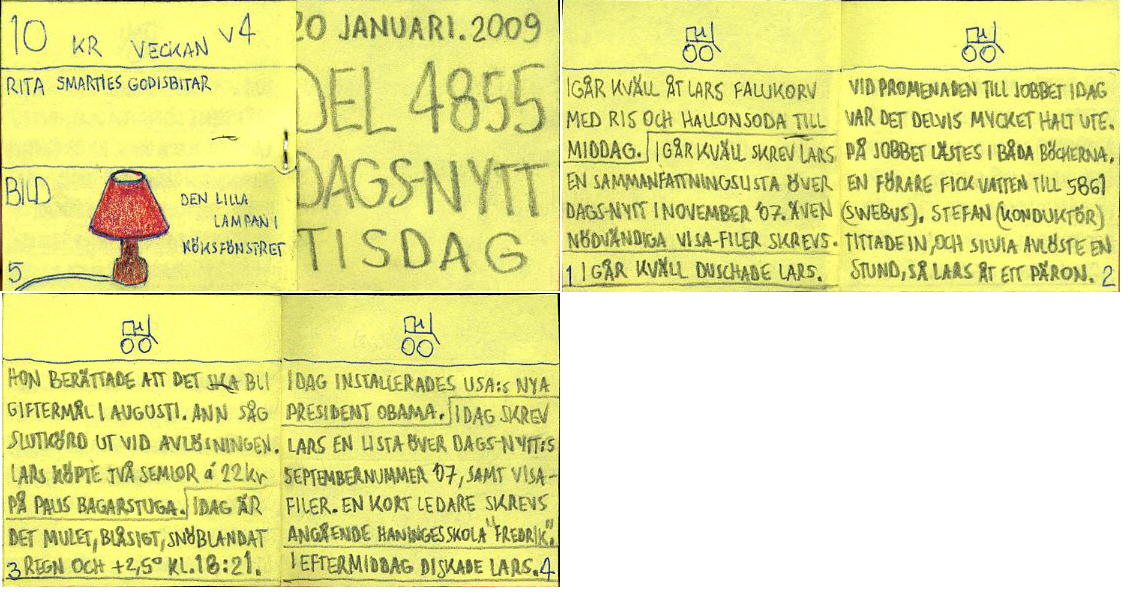 10 KR VECKAN V4
RITA SMARTIES GODISBITAR
BILD
DEN LILLA
LAMPAN I
KÖKSFÖNSTRET
5
20 JANUARI. 2009
DEL 4855
DAGS-NYTT
TISDAG
IGÅR KVÄLL ÅT LARS FALUKORV
MED RIS OCH HALLONSODA TILL
MIDDAG. IGÅR KVÄLL SKREV LARS
EN SAMMANFATTNINGSLISTA ÖVER
DAGS-NYTT I NOVEMBER '07. ÄVEN
NÖDVÄNDIGA VISA-FILER SKREVS.
1 IGÅR KVÄLL DUSCHADE LARS.
VID PROMENADEN TILL JOBBET IDAG
VAR DET DELVIS MYCKET HALT UTE.
PÅ JOBBET LÄSTES I BÅDA BÖCKERNA.
EN FÖRARE FICK VATTEN TILL 5861
(SWEBUS). STEFAN (KONDUKTÖR)
TITTADE IN, OCH SILVIA AVLÖSTE EN
STUND, SÅ LARS ÅT ETT PÄRON. 2
HON BERÄTTADE ATT DET SKA BLI
GIFTERMÅL I AUGUSTI. ANN SÅG
SLUTKÖRD UT VID AVLÖSNINGEN.
LARS KÖPTE TVÅ SEMLOR á 22 kr
PÅ PAUS BAGARSTUGA. IDAG ÄR
DET MULET, BLÅSIGT, SNÖBLANDAT
3 REGN OCH +2,5° KL. 18:21.
IDAG INSTALLERADES USA:s NYA
PRESIDENT OBAMA. IDAG SKREV
LARS EN LISTA ÖVER DAGS-NYTT:S
SEPTEMBERNUMMER '07, SAMT VISA-
FILER. EN KORT LEDARE SKREVS
ANGÅENDE HANINGESSKOLA "FREDRIK".
I EFTERMIDDAG DISKADE LARS. 4